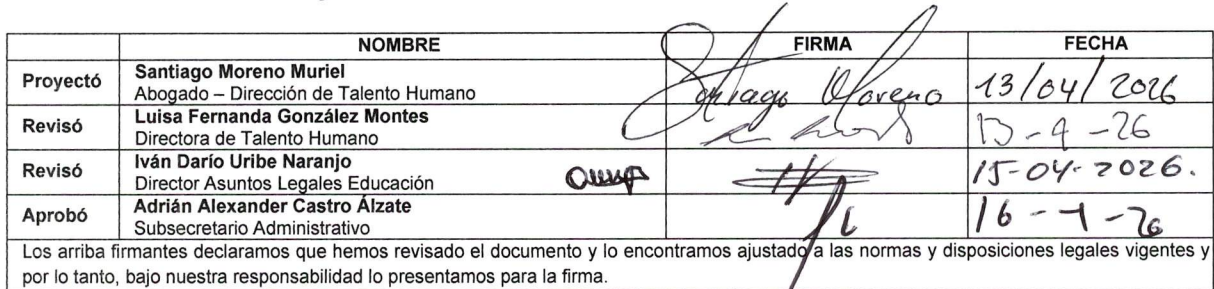 NOMBRE FIRMA FECHA
Proyectó Santiago Moreno Muriel
Abogado – Dirección de Talento Humano Santiago Moreno 13/04/2026
Revisó Luisa Fernanda González Montes
Directora de Talento Humano 13-4-26
Revisó Iván Darío Uribe Naranjo
Director Asuntos Legales Educación 15-04-2026.
Aprobó Adrián Alexander Castro Álzate
Subsecretario Administrativo 16-4-26
Los arriba firmantes declaramos que hemos revisado el documento y lo encontramos ajustado a las normas y disposiciones legales vigentes y
por lo tanto, bajo nuestra responsabilidad lo presentamos para la firma.